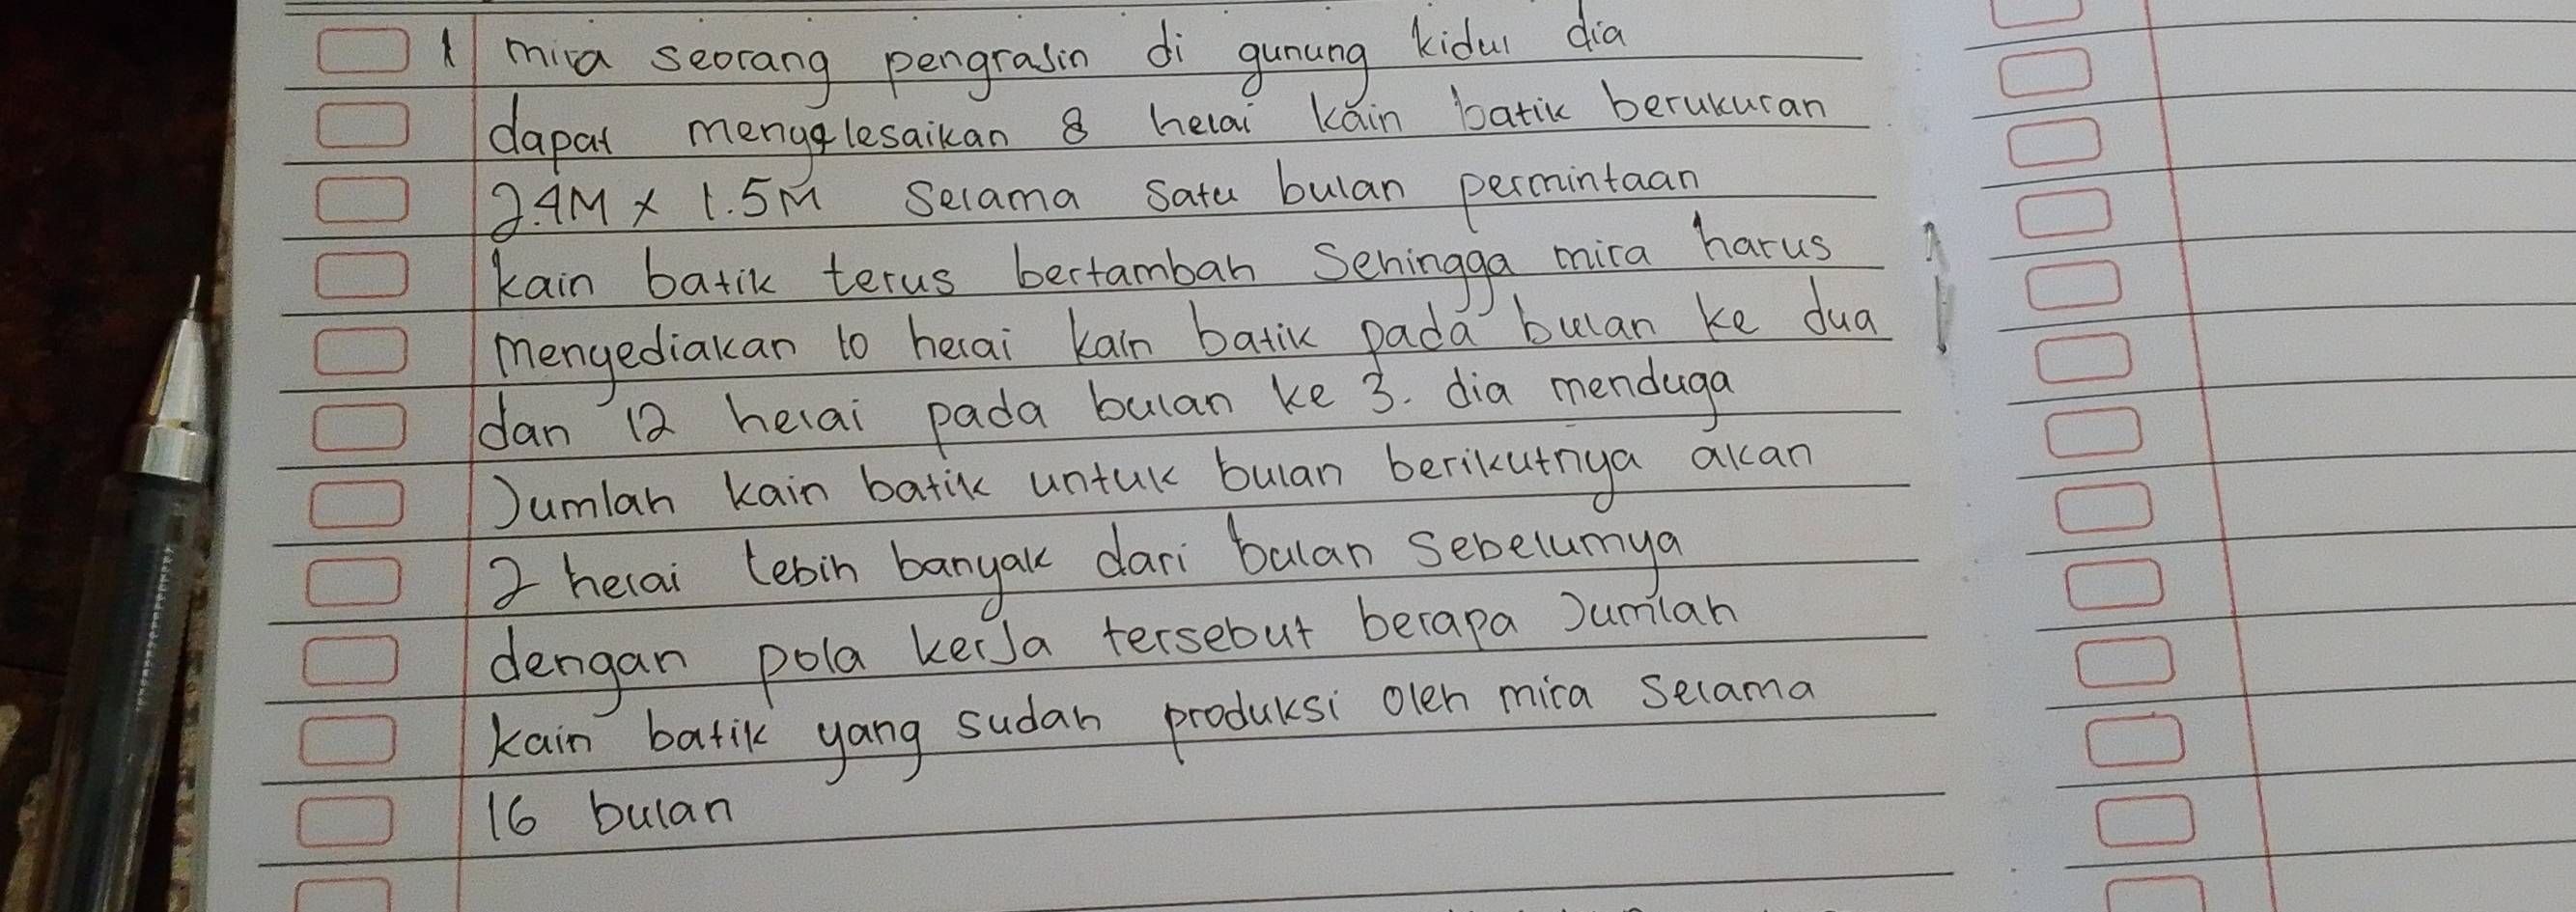 1 mira seorang pengrajin di gunung kidul dia
dapat mengelesaikan 8 helai kain batik berukuran
2.4M x 1.5M selama satu bulan permintaan
kain batik terus bertambah Sehingga mira harus
menyediakan 10 helai kain batik pada bulan ke dua
dan 12 helai pada bulan ke 3. dia menduga
Jumlah kain batik untuk bulan berikutnya akan
2 helai lebih banyak dari bulan Sebelumya
dengan pola kerja tersebut berapa Jumlah
kain batik yang sudah produksi oleh mira selama
16 bulan